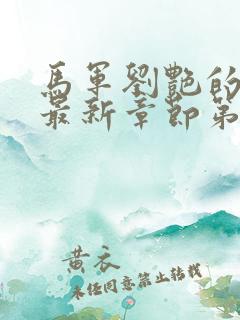 馬軍劉艷的
最新章節第
黃衣
未經同意禁止轉載